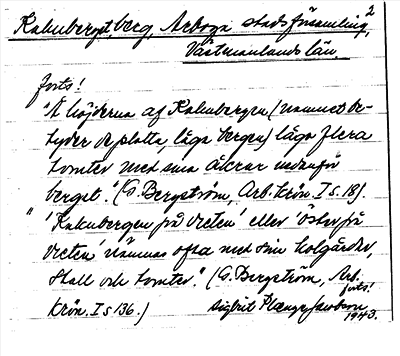 Kaknberget, berg, Arboga stadsförsamling, 2
Västmanlands län
forts!
"Å höjderna af Kaknbergen (namnet be-
tyder de platta, låga bergen) låga flera
tomter med sina åkrar nedanför
berget." (G. Bergström, Arb. krön. I s. 18).
" 'Kaknbergen på vreten' eller 'Öster på
vreten' nämnas ofta med sin kolgårdar,
stall och tomter." (G. Bergström, Arb.
forts!
krön. I s 136.) Sigbrit Plænge Jacobson
1943.